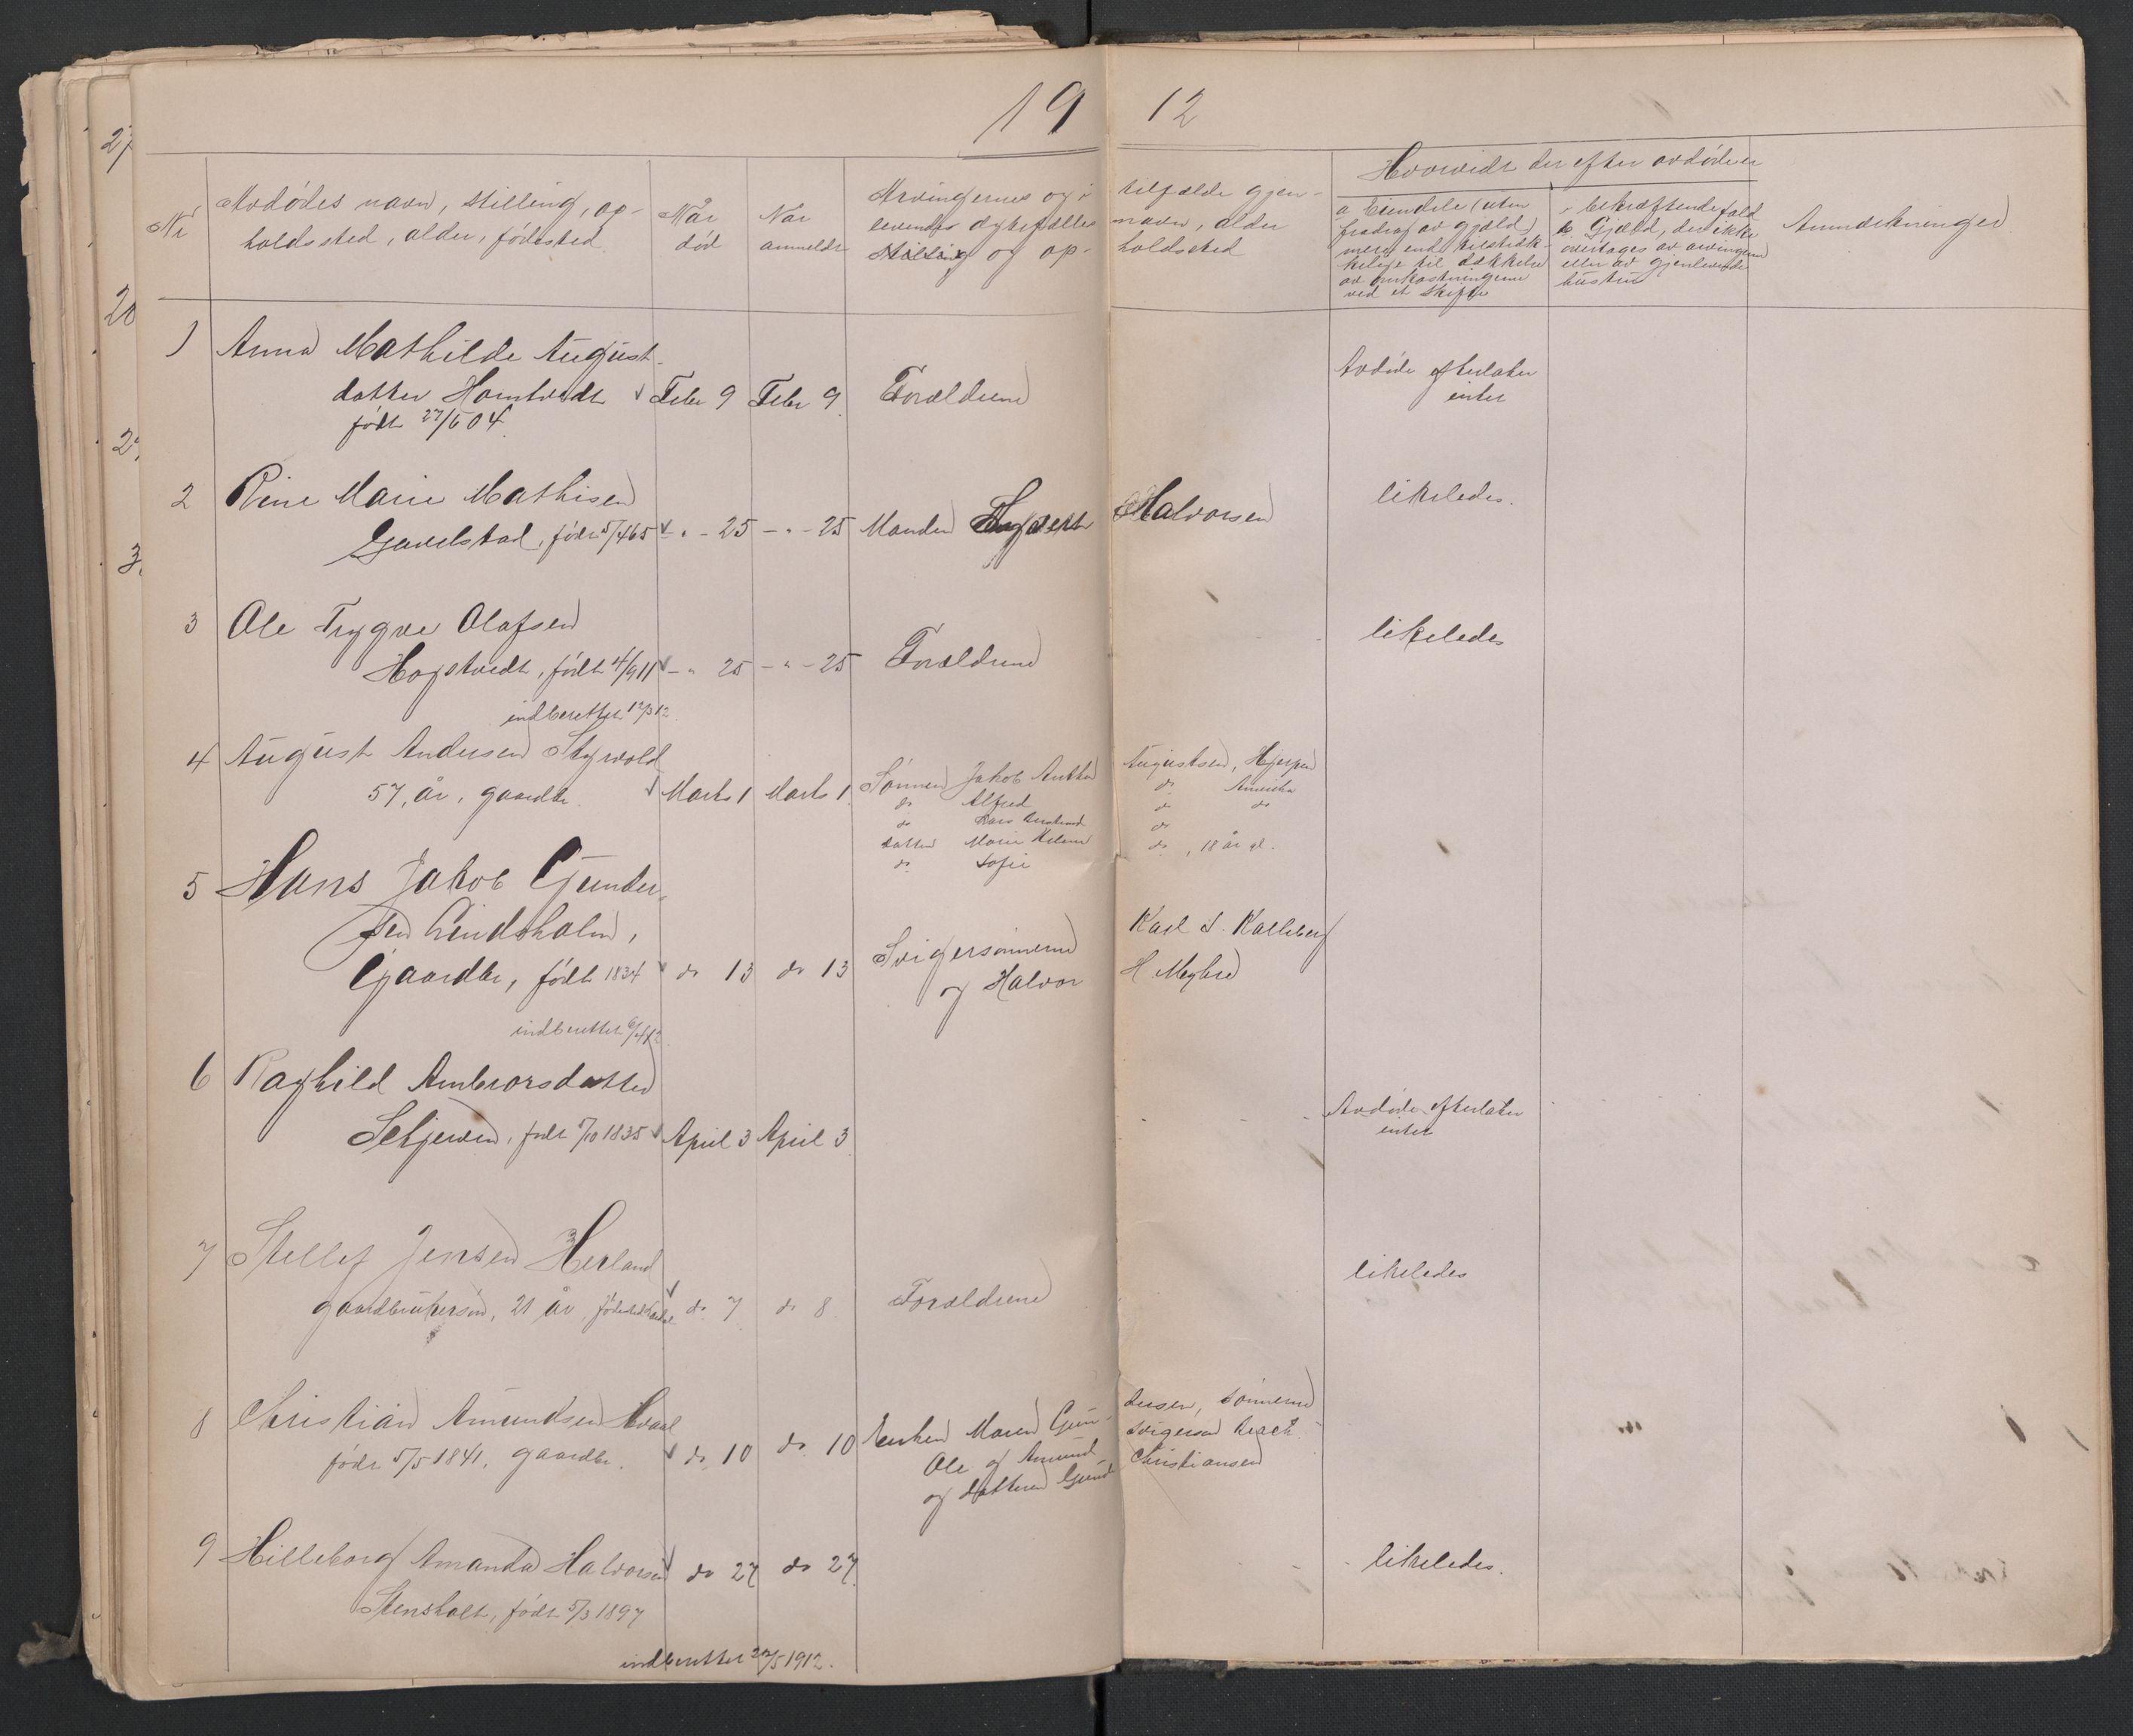 19 12
Nr
Avdødes navn, stilling, op-
holdssted, alder, fødested
Når
død
Når
anmeldt
Arvingernes og i tilfælde gjen-
levendes ægtefælles navn, alder
stilling og op- holdssted
Hvorvidt der efter avdøde er
a Eiendele (uten
fradrag av gjæld)
mere end tilstræk-
kelige til dækkelse
av omkostningerne
ved et skifte
i bekræftende fald
b Gjæld, der ikke
overtages av arvingerne
eller av gjenlevende
hustru
Anmerkninger
1 Anna Mathilde August-
datter Homtvedt Febr 9 Febr 9 Forældrene
født 27/5 04
Avdøde efterlater
intet
2 Rine Marie Mathisen
Gavelstad, født 5/4 65 - " - 25 - " - 25 Manden Halvorsen
likeledes.
3 Ole Trygve Olafsen
Hogstvedt, født 4/9 11 - " 25 - " - 25 Forældrene
likeledes
indberettet 12/3 12
4 August Andersen
57, år, gaardbr. Marts 1 Marts 1
Sønnen Jakob Anton Augustsen,
do Alfred do Amerika
do do do
datter Marie Helene do
do Sofie do, 18 år gl.
5 Hans Jakob Gunder-
sen Lindsholm,
Gaardbr, født 1834 do 13 do 13
Svigersønnerne Karl S.
og Halvor H.
indberettet 6/4 12
6 Raghild Ambrorsdatter
født 5/10 1835 April 3 April 3
Avdøde efterlater
intet
7 Stellef Jensen Herland
gaardbrukersøn, 21 år, do 7 do 8 Forældrene
likeledes
8 Christian Amundsen
født 5/5 1841, gaardbr. do 10 do 10
Enken Maren Gun- dersen, sønnerne
Ole og Amund
og datteren Christiansen
9 Hilleborg Amanda Halvorsen do 27 do 27
Stensholt, født 5/3 1897
likeledes.
indberettet 22/5 1912.